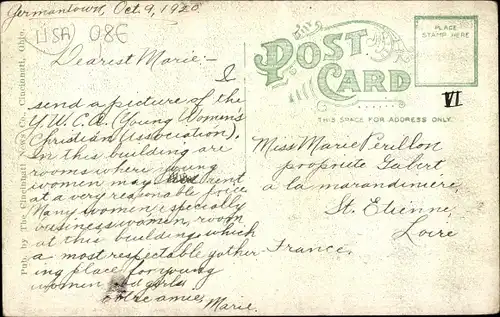 Germantown, Oct. 9, 1920
USA 086
Dearest Marie:-
I
send a picture of the
Y.W.C.A. (Young Women's
Christian Association).
In this building are
rooms where young
women may rent
at a very reasonable price
Many women, especially
businesswomen, room
at this building, which
a most respectable gather
ing place for young
women and girls
votre amie,
Marie.
Pub. by The Cincinnati News Co., Cincinnati, Ohio.
POST
CARD
THIS SPACE FOR ADDRESS ONLY.
PLACE
STAMP HERE
VI
Miss Marie Perillon
propriete Gabert
a la marandiniere
St. Etienne,
Loire
France.